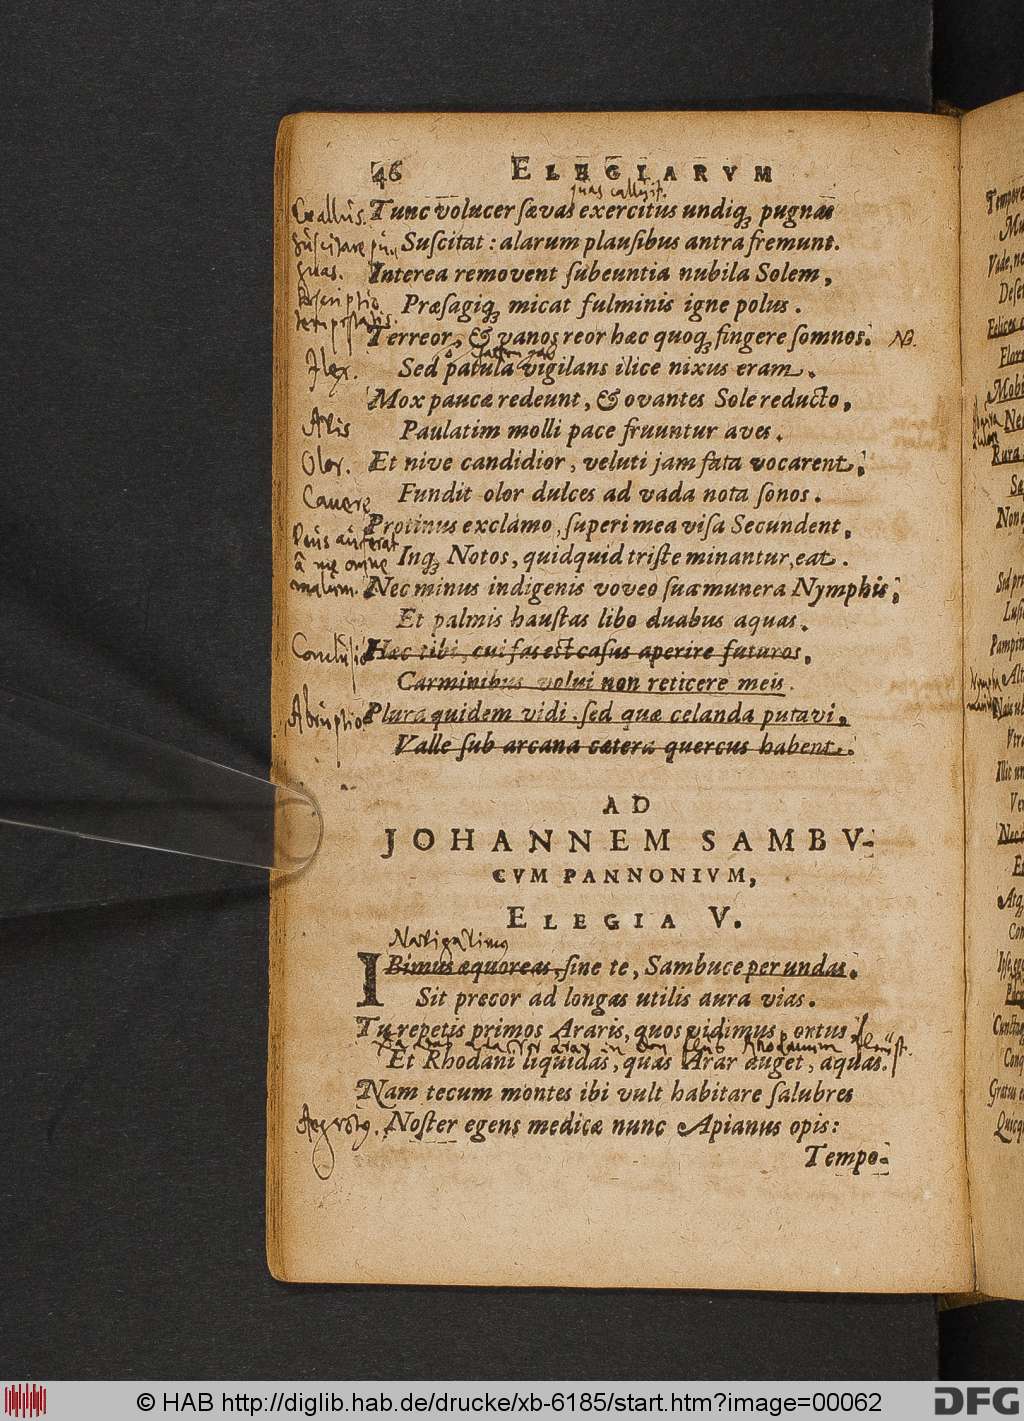 46 ELEGIARVM
Tunc volucer sævas exercitus undiq; pugnas
Suscitat: alarum plausibus antra fremunt.
Interea removent subeuntia nubila Solem,
Præsagiq; micat fulminis igne polus.
Terreor, & vanos reor hæc quoq; fingere somnos: NB.
Sed patula vigilans ilice nixus eram.
Mox paucæ redeunt, & ovantes Sole reducto,
Paulatim molli pace fruuntur aves.
Et nive candidior, veluti jam fata vocarent,
Fundit olor dulces ad vada nota sonos.
Protinus exclamo, superi mea visa secundent,
Inq; Notos, quidquid triste minantur, eat.
Nec minus indigenis voveo sua munera Nymphis,
Et palmis haustas libo duabus aquas.
Hæc tibi, cui fas est casus aperire futuros,
Carminibus volui non reticere meis.
Plura quidem vidi. sed quæ celanda putavi,
Valle sub arcana cætera quercus habent.
Suscitare
Descriptio
tempestatis.
Ilex.
Alis
Olor.
Cavere
Deus auferat
malum.
Conclusio
Abruptio
AD
JOHANNEM SAMBV-
CVM PANNONIVM,
ELEGIA V.
Navigabimus
IBimus æquoreas, sine te, Sambuce per undas.
Sit precor ad longas utilis aura vias.
Tu repetis primos Araris, quos vidimus, ortus,
Et Rhodani liquidas, quas Arar auget, aquas.
Nam tecum montes ibi vult habitare salubres
Noster egens medicæ nunc Apianus opis:
Tempo-
© HAB http://diglib.hab.de/drucke/xb-6185/start.htm?image=00062
DFG